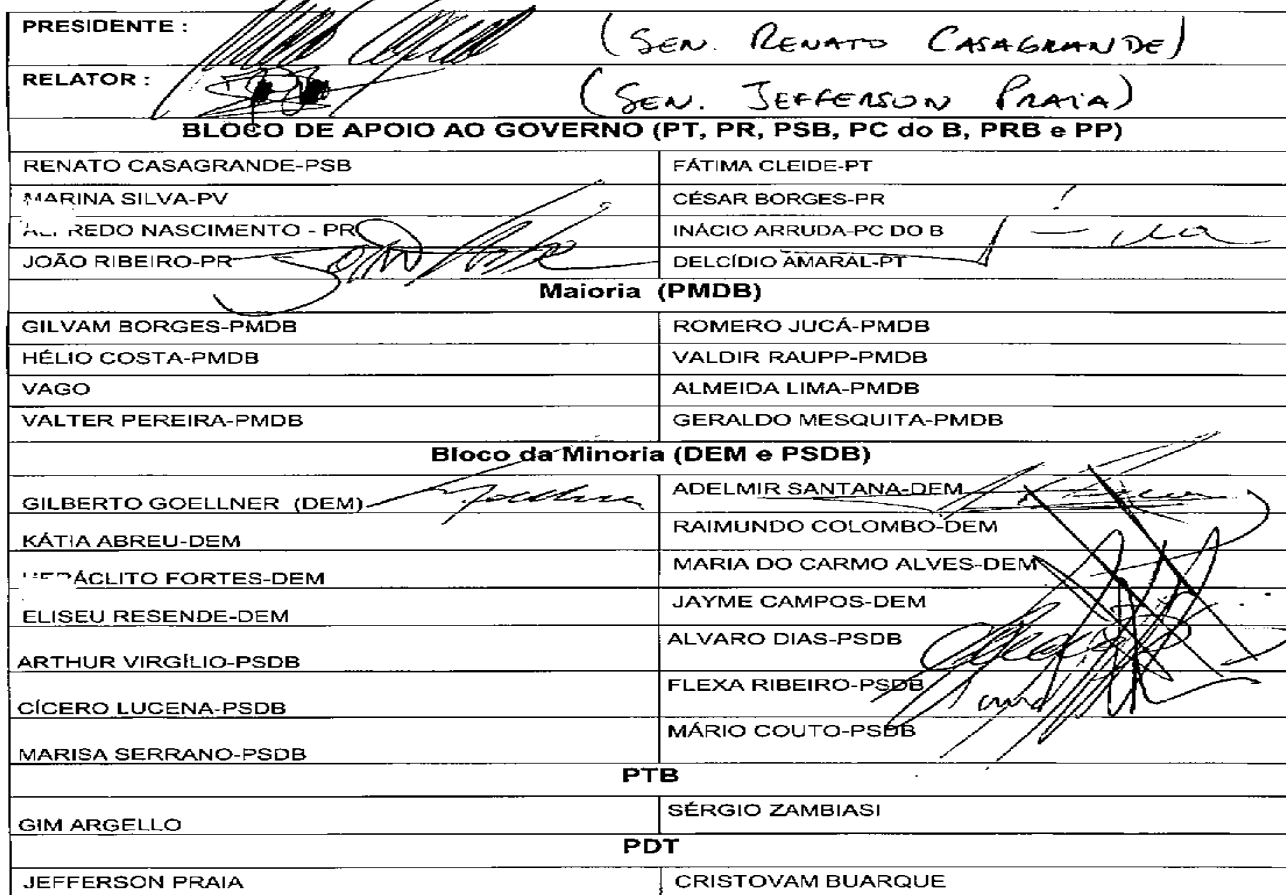 PRESIDENTE : (SEN. RENATO CASAGRANDE)
RELATOR : (SEN. JEFFERSON PRAIA)
BLOCO DE APOIO AO GOVERNO (PT, PR, PSB, PC do B, PRB e PP)
RENATO CASAGRANDE-PSB FÁTIMA CLEIDE-PT
MARINA SILVA-PV CÉSAR BORGES-PR
ALFREDO NASCIMENTO - PR INÁCIO ARRUDA-PC DO B
JOÃO RIBEIRO-PR DELCÍDIO AMARAL-PT
Maioria (PMDB)
GILVAM BORGES-PMDB ROMERO JUCÁ-PMDB
HÉLIO COSTA-PMDB VALDIR RAUPP-PMDB
VAGO ALMEIDA LIMA-PMDB
VALTER PEREIRA-PMDB GERALDO MESQUITA-PMDB
Bloco da Minoria (DEM e PSDB)
GILBERTO GOELLNER (DEM) ADELMIR SANTANA-DEM
KÁTIA ABREU-DEM RAIMUNDO COLOMBO-DEM
HERÁCLITO FORTES-DEM MARIA DO CARMO ALVES-DEM
ELISEU RESENDE-DEM JAYME CAMPOS-DEM
ARTHUR VIRGÍLIO-PSDB ALVARO DIAS-PSDB
CÍCERO LUCENA-PSDB FLEXA RIBEIRO-PSDB
MARISA SERRANO-PSDB MÁRIO COUTO-PSDB
PTB
GIM ARGELLO SÉRGIO ZAMBIASI
PDT
JEFFERSON PRAIA CRISTOVAM BUARQUE